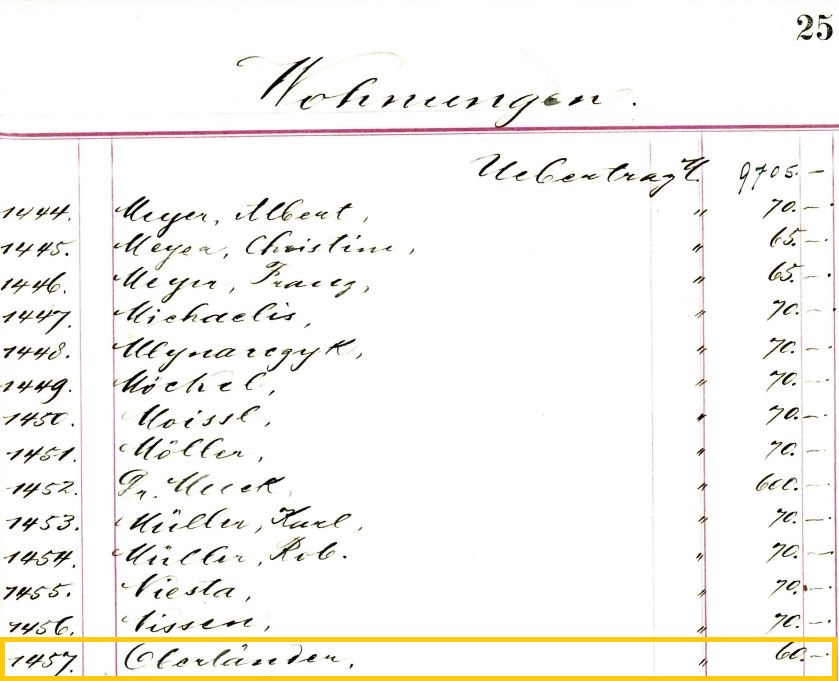 25
Wohnungen.
Uebertrag M. 9705.—
1444. Meyer, Albert, " 70.—.
1445. Meyer, Christine, " 65.—.
1446. Meyer, Franz, " 65.—.
1447. Michaelis, " 70.—.
1448. Mlynarczyk, " 70.—.
1449. Möckel, " 70.—.
1450. Moissl, " 70.—.
1451. Möller, " 70.—
1452. " 600.—.
1453. Müller, Karl, " 70.—.
1454. Müller, Rob. " 70.—
1455. Niesta, " 70.—.
1456. Nissen, " 70.—.
1457. Oberländer, " 60.—.